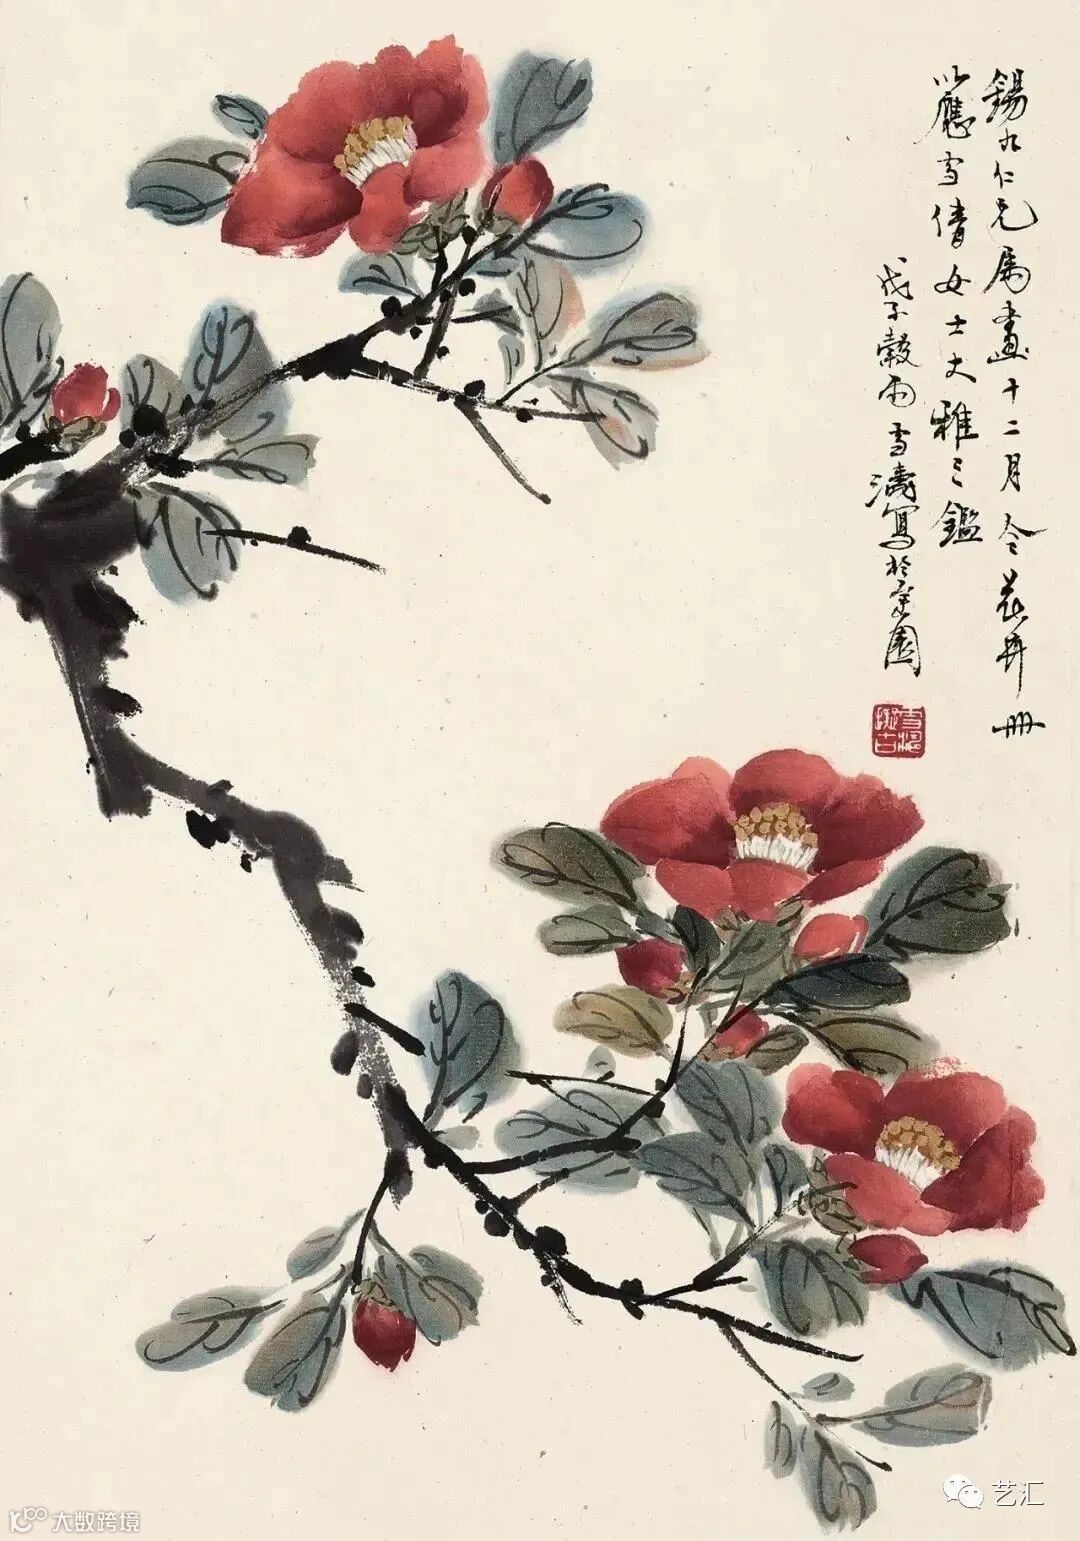 錫九仁兄屬畫十二月令花卉冊
以應雪倩女士大雅之鑑
戊子穀雨雪濤寫於園
艺汇
大数跨境